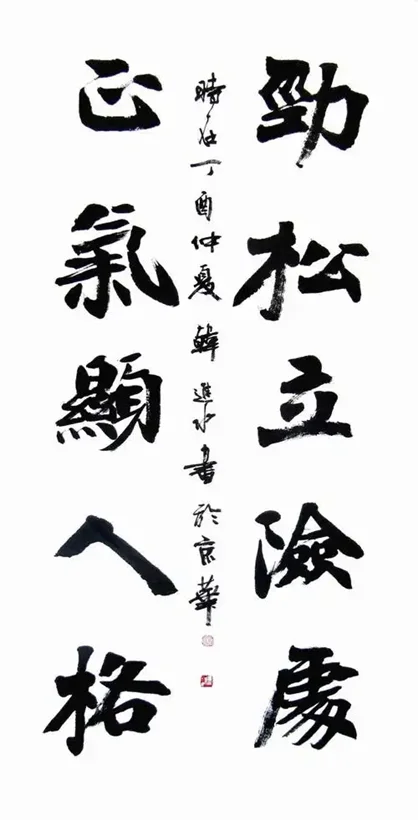 勁松立險處
正氣顯人格
時在丁酉仲夏韓進水書於京華